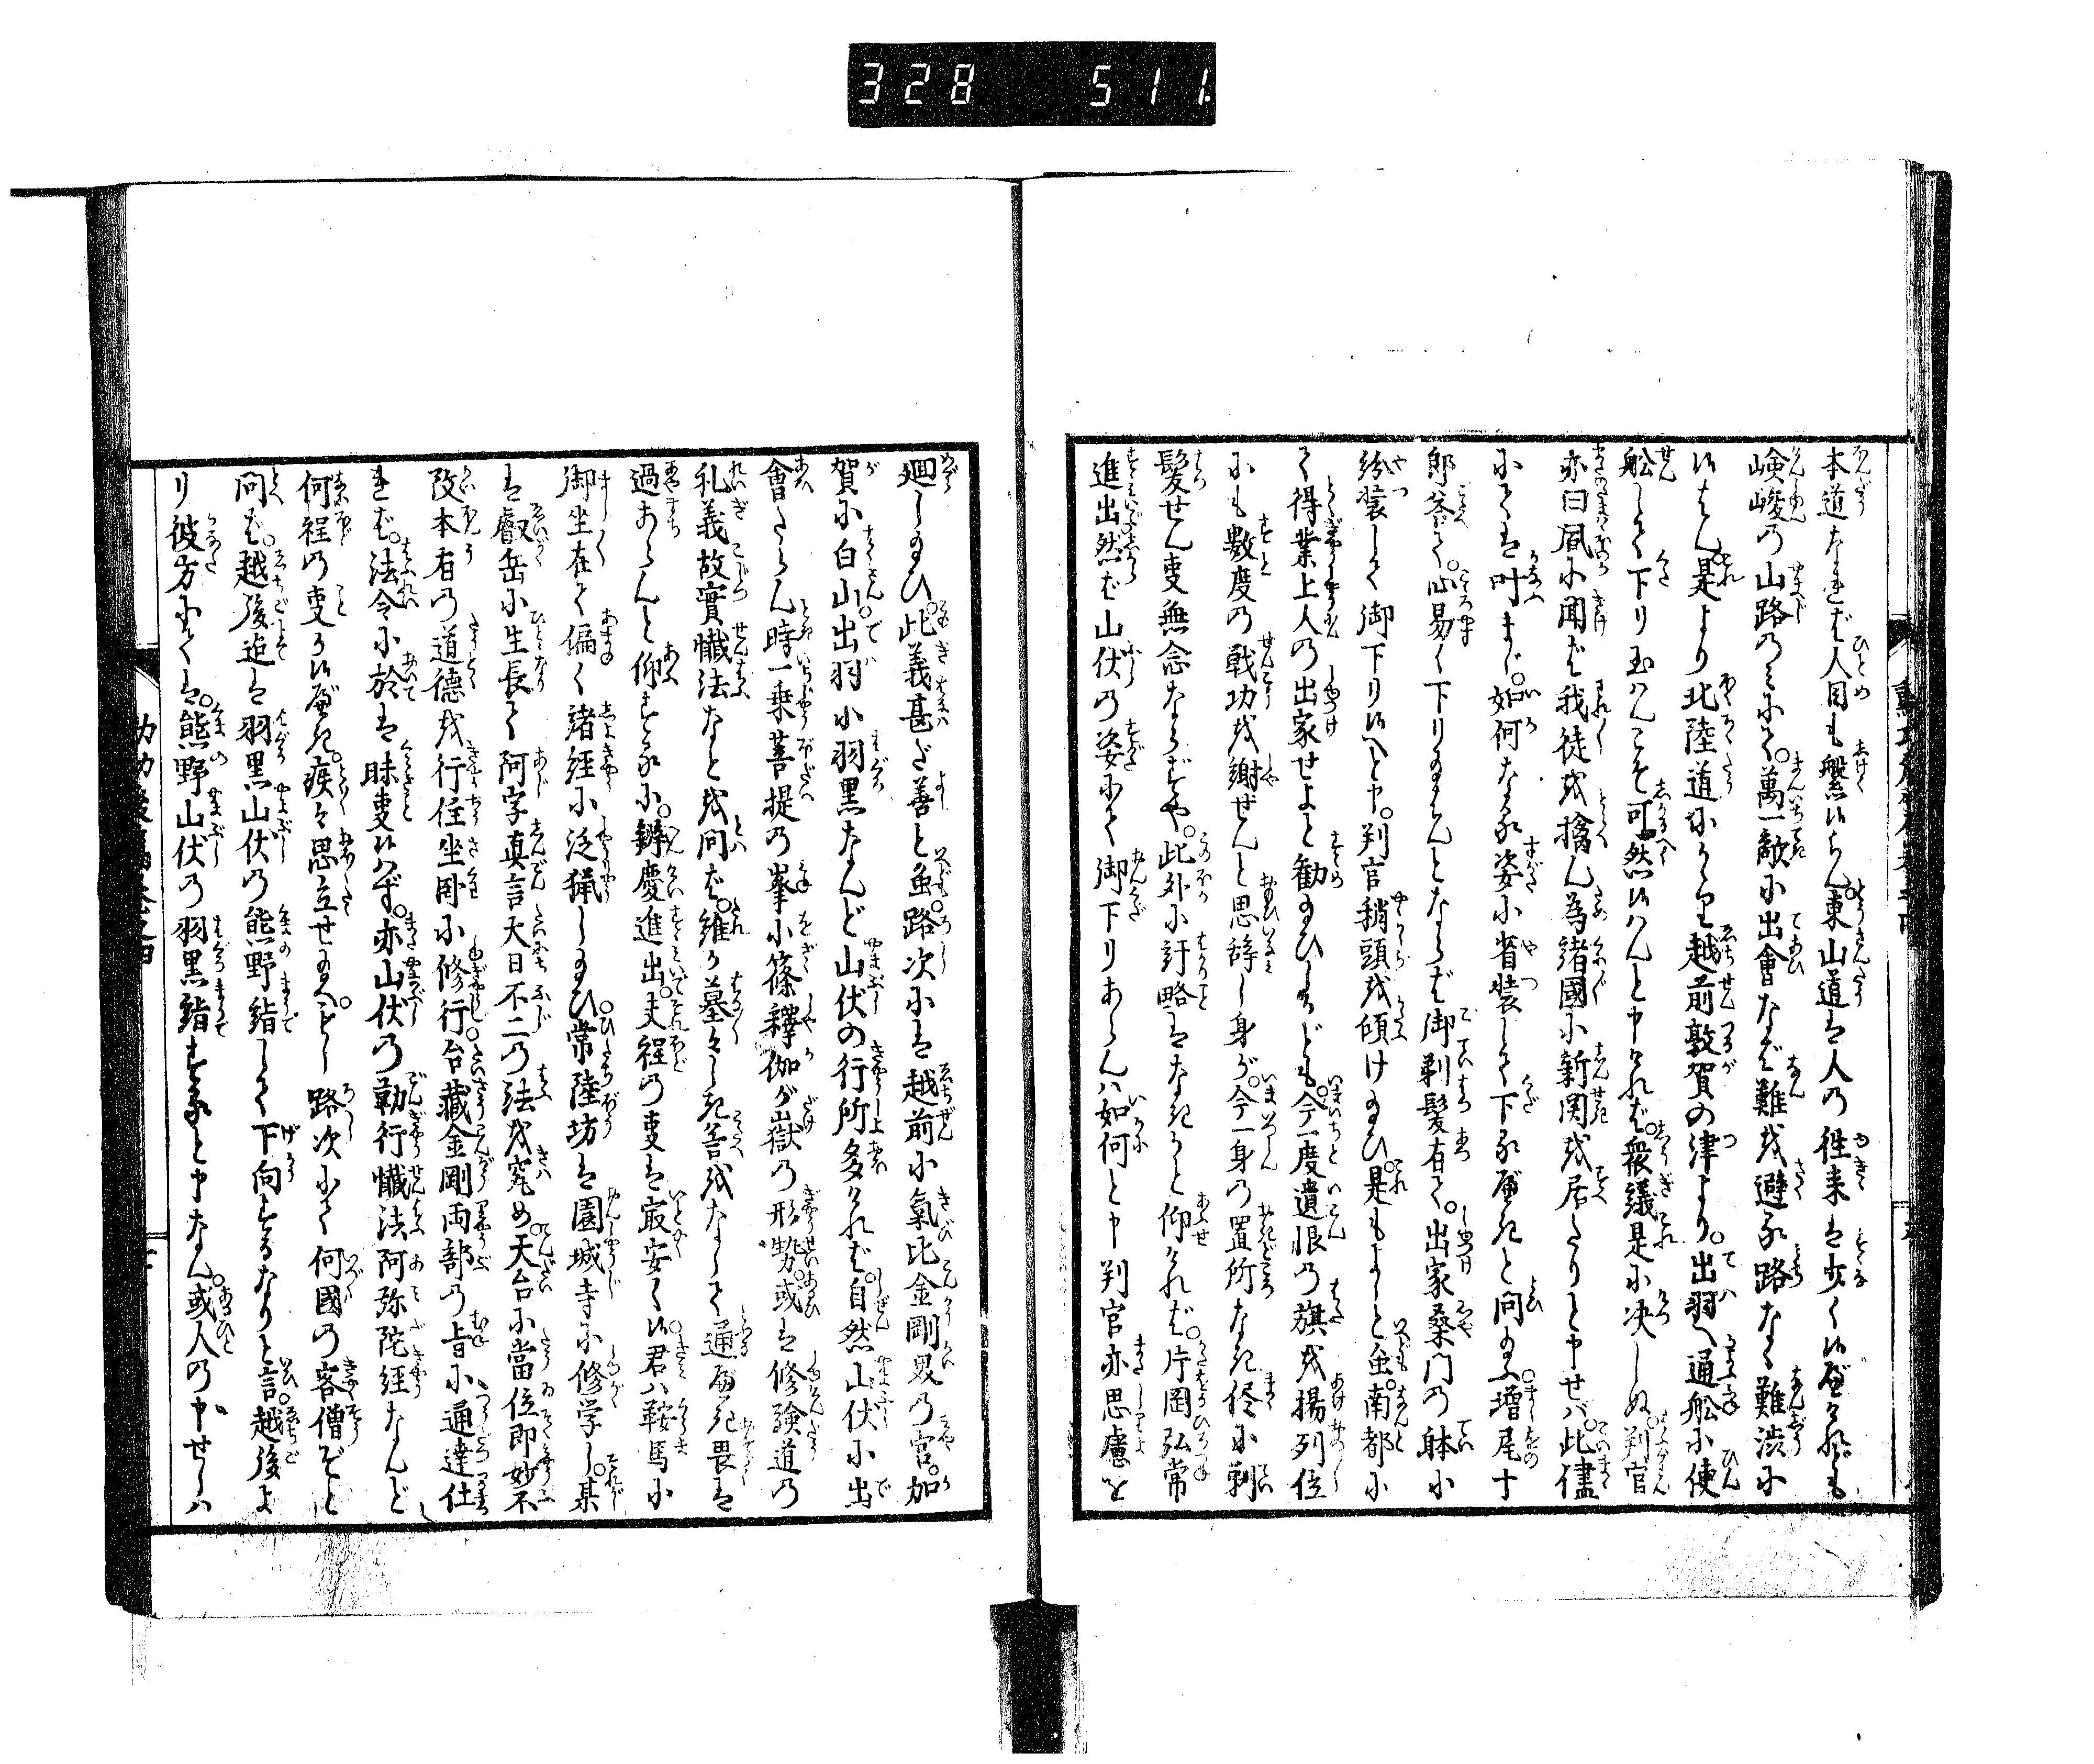 328 511
本道なれば人目も繁けん東山道は人の徃来は少く候べけれども
嶮峻の山路のみにて。萬一敵に出會なば難を避る路なく難渋に
候はん是より北陸道にかゝり越前敦賀の津より。出羽へ通舩に便
舩して下り玉はんこそ可然候はんと申ければ。衆議是に决しぬ。判官
亦曰風に聞ば我徒を擒ん為諸國に新関を居たりと申せバ。此儘
にては叶まじ。如何なる姿に省装して下るべきと問給ふ。増尾十
郎答て。心易く下り給はんとならば御剃髪有て。出家桑門の躰に
紛装して御下り候へと申。判官稍頭を傾け給ひ。是もよしと虽。南都に
て得業上人の出家せよと勧給ひしかども。今一度遺恨の旗を揚列位
にも數度の戦功を謝ぜんと思辞し身が。今一身の置所なき侭に剃
髪せん叓無念ならずや。此外に計略はなきかと仰ければ。片岡弘常
進出然ば山伏の姿にて御下りあらんハ如何と申判官亦思慮を
廻し給ひ。此義甚だ善と虽。路次には越前に氣比金剛界の宮。加
賀に白山。出羽に羽黒なんど山伏の行所多ければ。自然山伏に出
會たらん時一乗菩提の峯に篠釋伽が嶽の形勢。或は修験道の
礼義故實懺法なとを問ば。誰か墓々しき荅をなして通べき畏は
過あらんと仰するに。辨慶進出。夫程の叓は㝡安く候君ハ鞍馬に
御坐在て偏く諸経に泛猟し給ひ。常陸坊は園城寺に修学し。某
は叡岳に生長て阿字真言大日不二の法を究め。天台に當位即妙不
改本有の道德を行住坐卧に修行。台藏金剛両部の旨に通達仕
たれば。法令に於は昧叓候ハず。亦山伏の勤行懺法阿弥陀経なんど
何程の叓か候べき。疾々思立せ給へ。もし路次にて何國の客僧ぞと
問ば。越後迄は羽黒山伏の熊野詣して下向するなりと言。越後よ
り彼方にては。熊野山伏の羽黒詣するとや申なん。或人の申せしハ